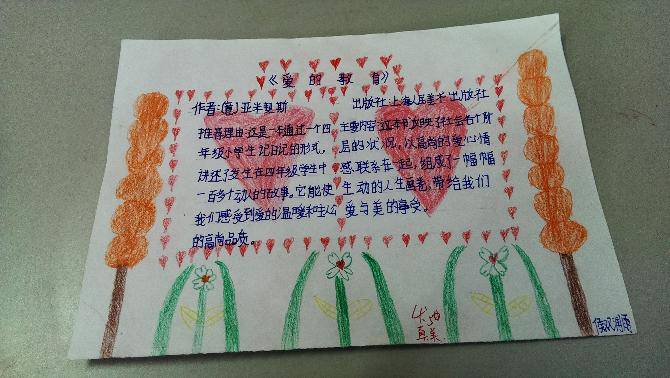 《爱的教育》
作者:[意]亚米契斯
推荐理由:这是一本通过一个四
年级小学生记日记的形式,
讲述了发生在四年级学生中
一百多个动人的故事。它能使
我们感受到爱的温暖和
的高尚品质。
出版社:上海人民美术出版社
主要内容:这本书反映了社会各个阶
层的状况,以高尚的爱心情
感联系在一起,组成了一幅幅
生动的人生画卷,带给我们
爱与美的享受。